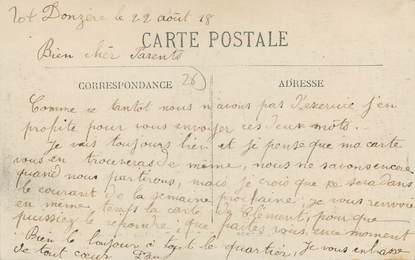 Donzère le 22 août 18
Bien cher Parents
CARTE POSTALE
CORRESPONDANCE
ADRESSE
26
Comme ce tantôt nous n'avons pas d'exercice j'en
profite pour vous envoyer ces deux mots.
Je vais toujours bien et je pense que ma carte
vous en trouveras de même, nous ne savons encore
quand nous partirons, mais je crois que ce sera dans
le courant de la semaine prochaine, je vous renvoie
en même temps la carte de Clément, pour que
puissiez le répondre, que faites vous en ce moment
Bien le bonjour à tout le quartier, Je vous embrasse
de tout cœur